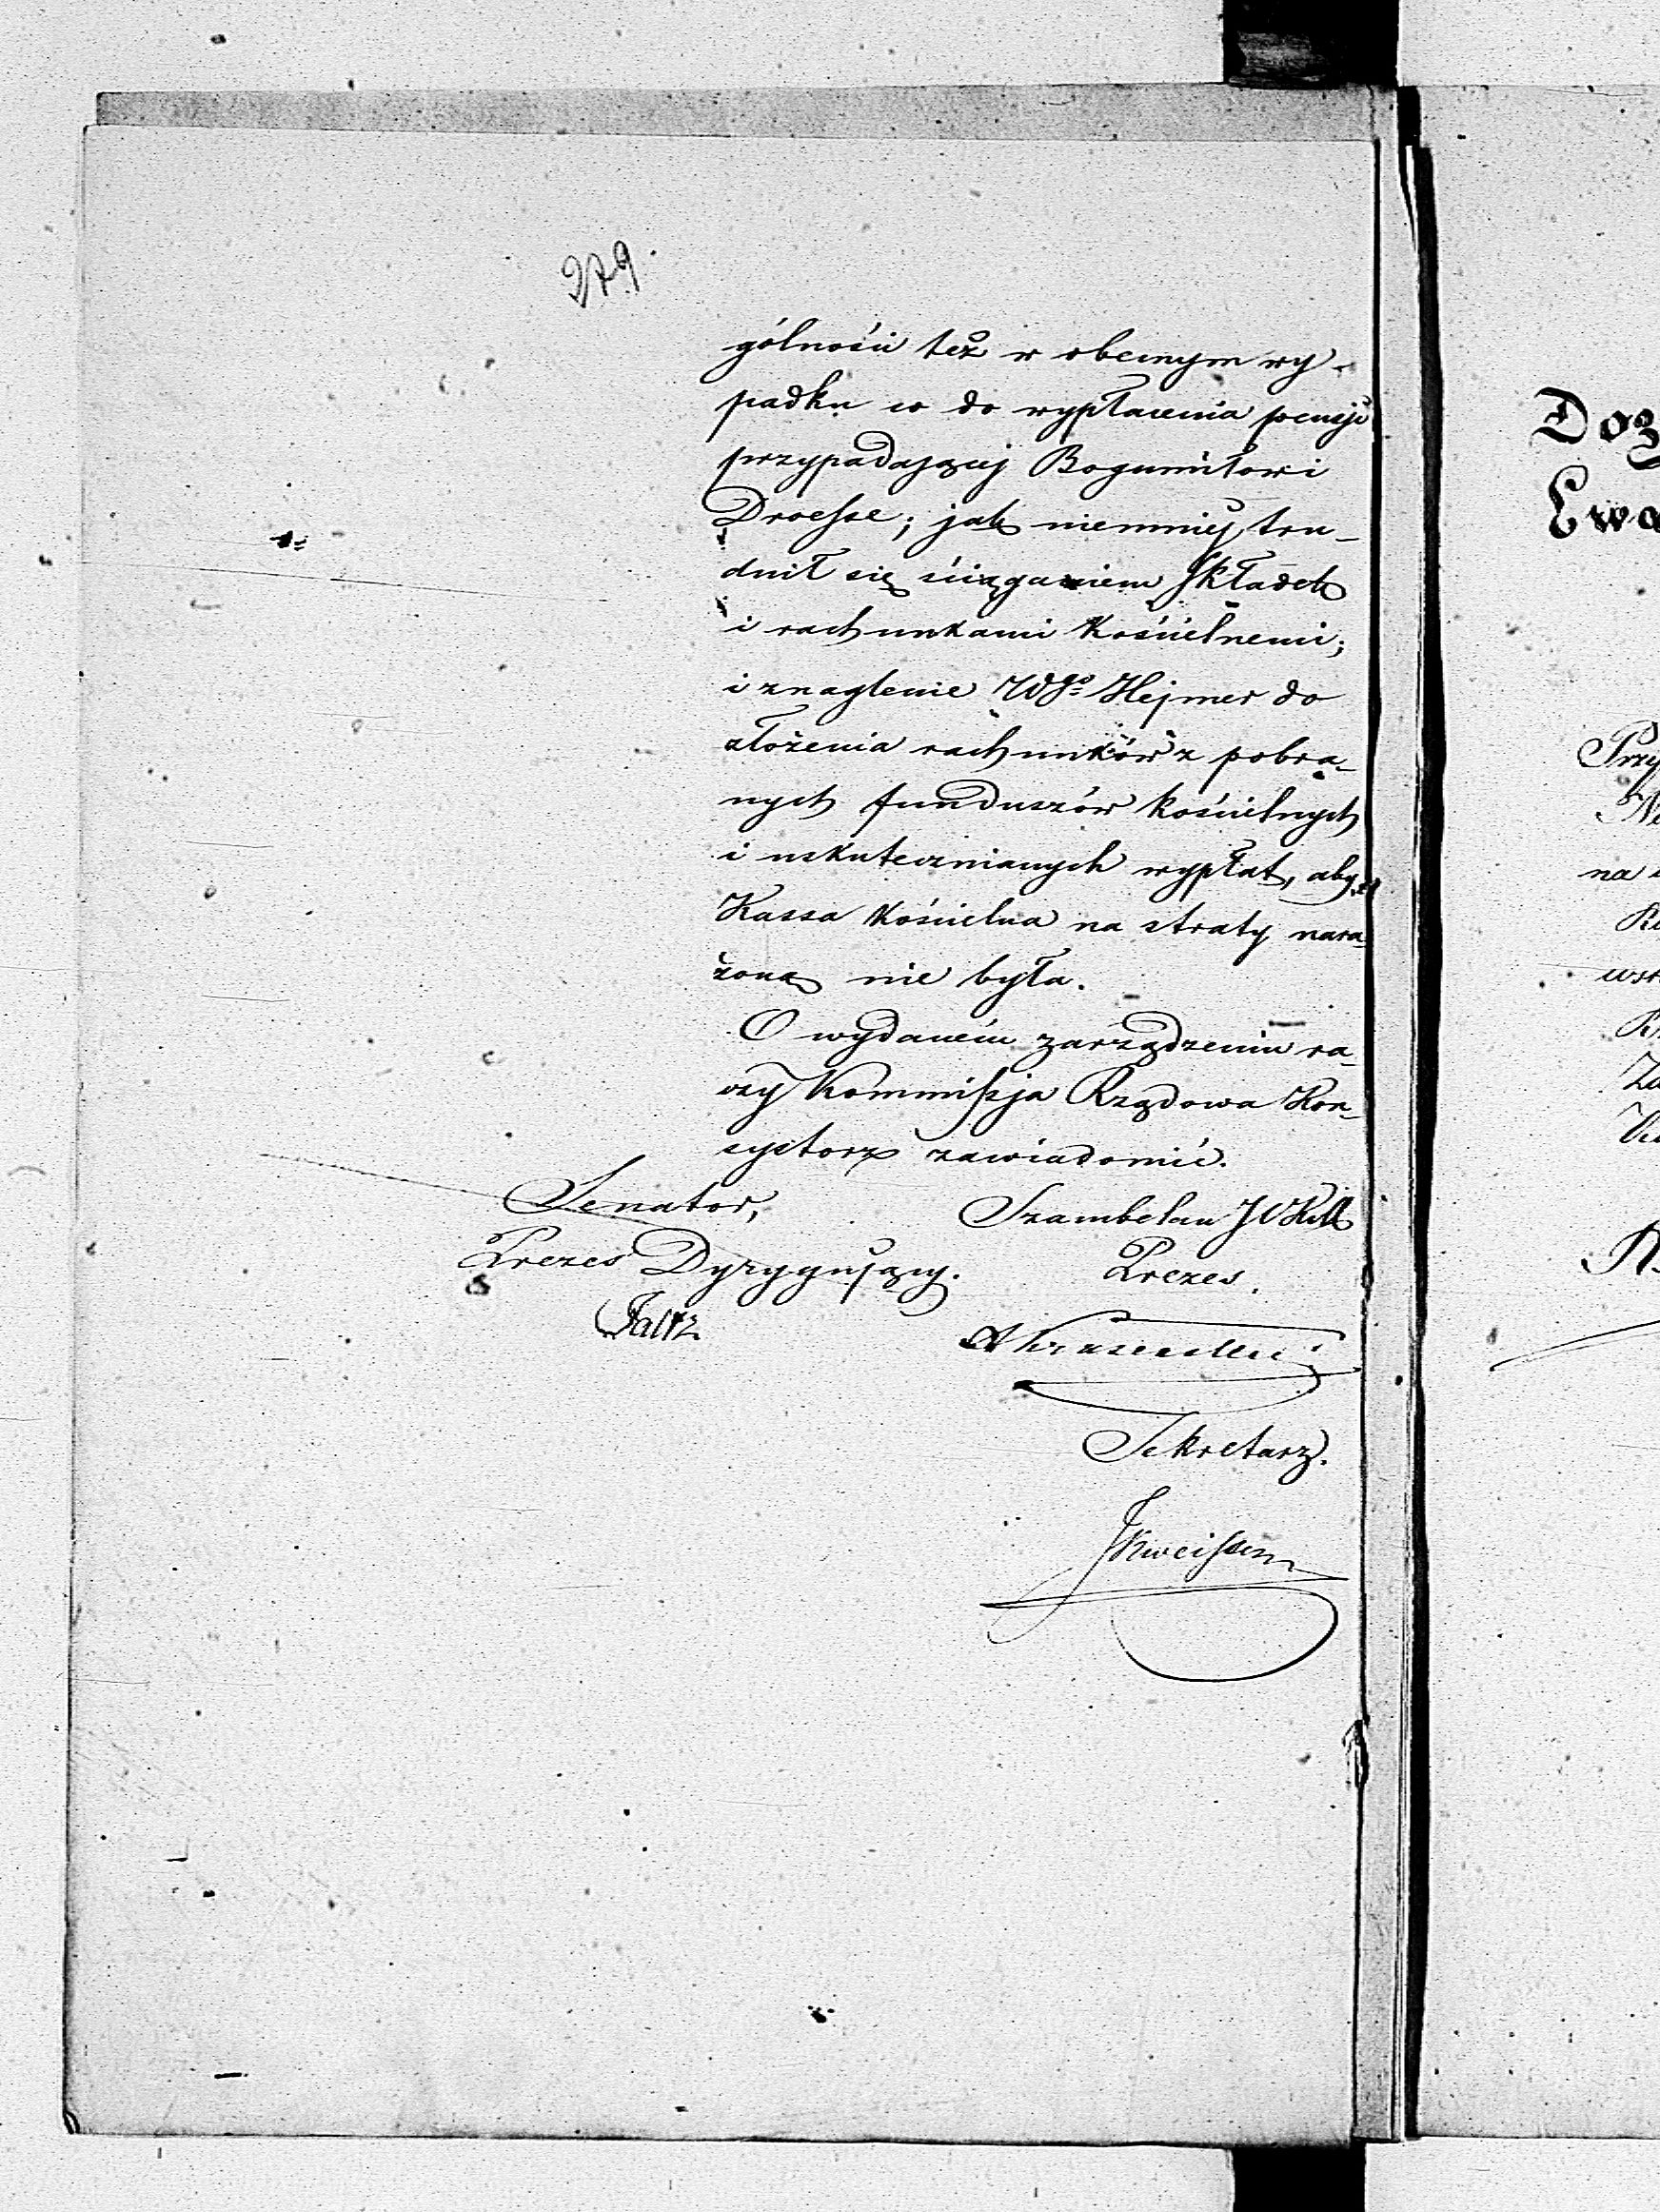 279.
gólności też w obecnym wy-
padku co do wypłacenia pensji
przypadającej Bogumiłowi
Droesse; jak niemniej, tru-
dnił się ściąganiem Składek
i rachunkami Kościelnemi;
i znaglenie Wgo Hejmer do
złożenia rachunków z pobra-
nych funduszów kościelnych
i uskutecznianych wypłat, aby
Kassa Kościelna na straty nara-
żoną nie była.
O wydaném zarządzeniu ra-
czy Kommissja Rządowa Kon-
systorz zawiadomić.
Senator,
Prezes Dyrygujący.
Szambelan
Prezes.
Sekretarz.
Doz
Ewa
Przy
na